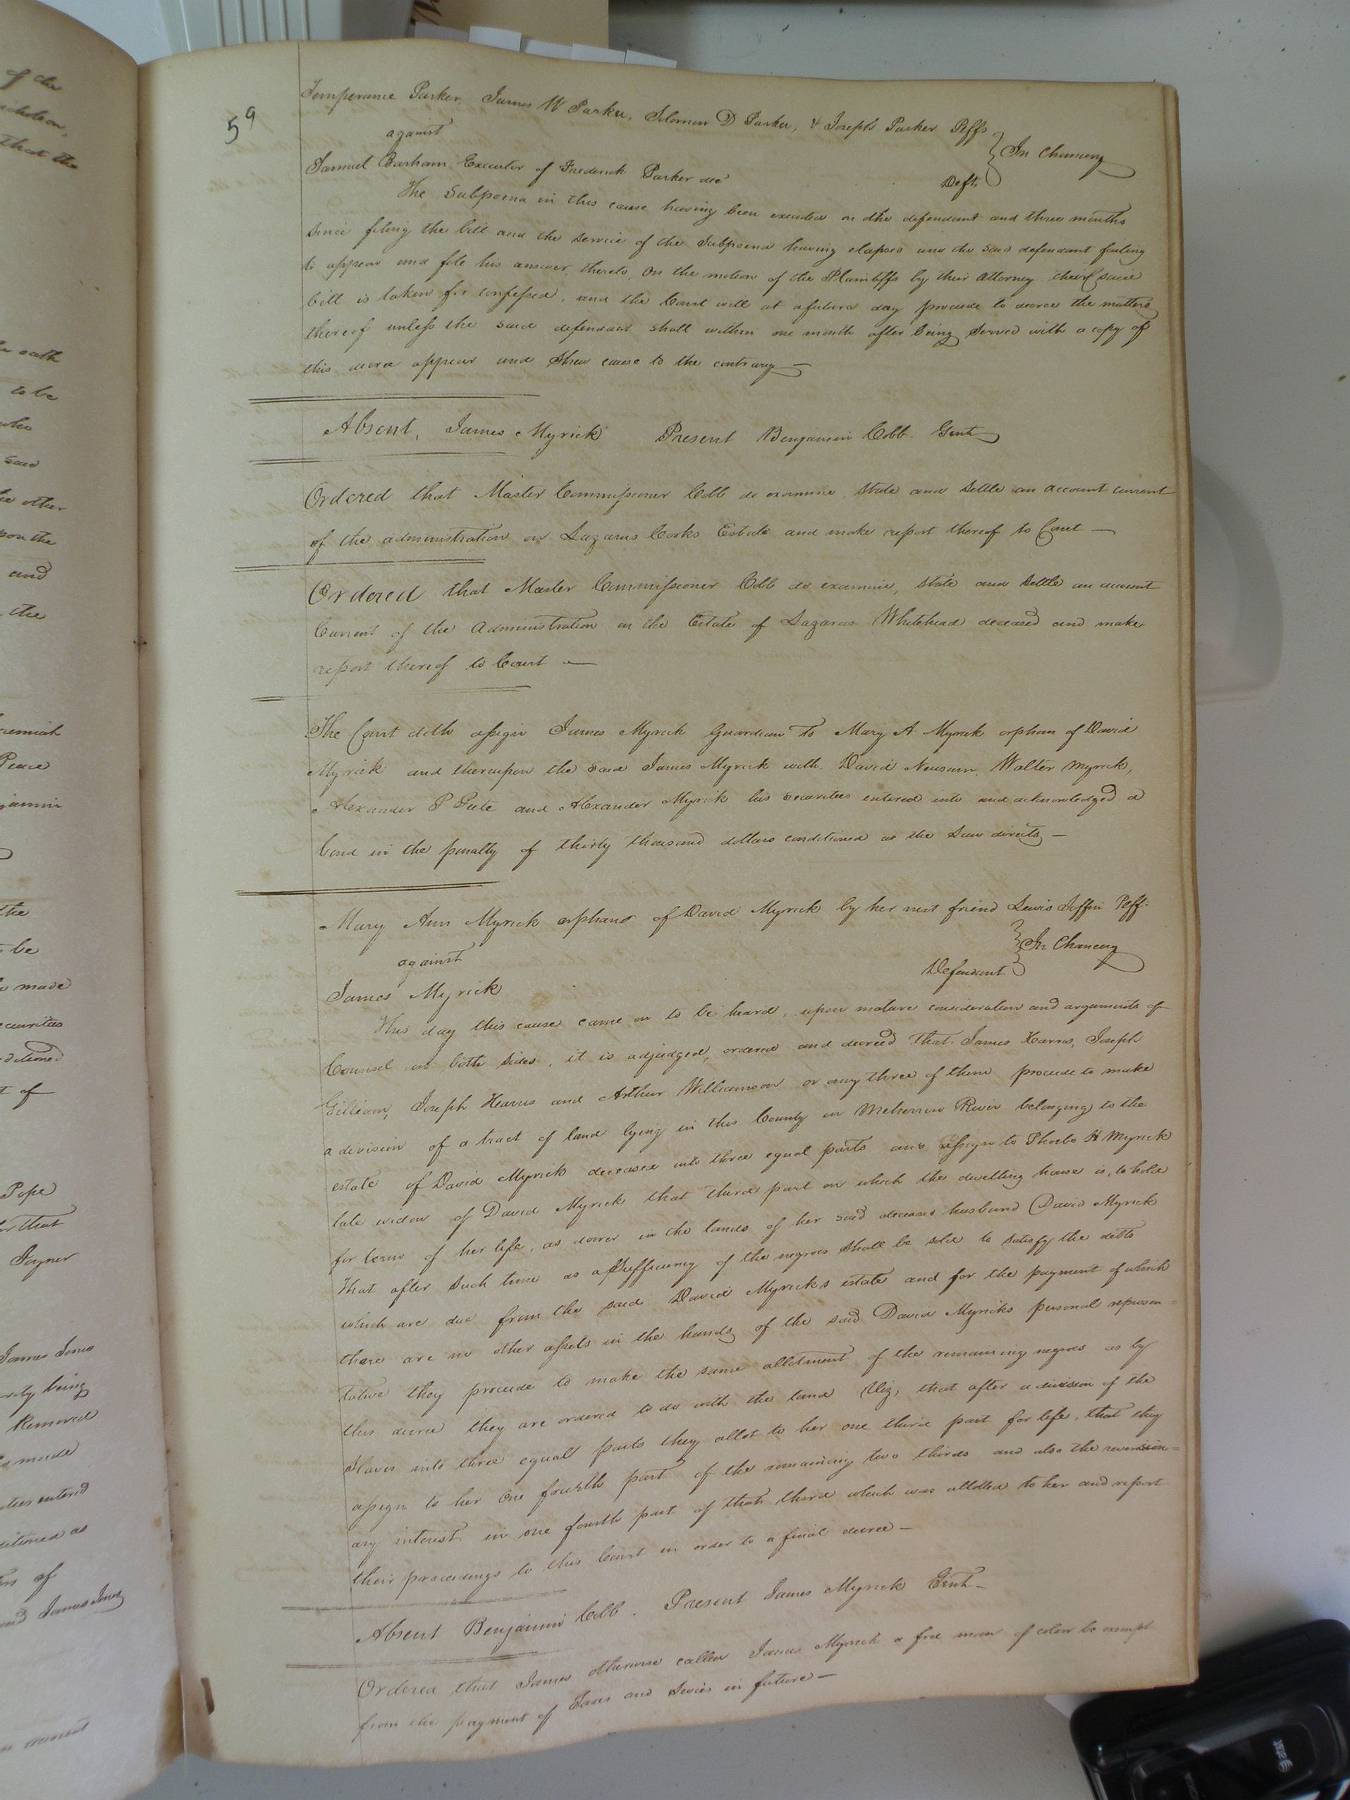 59
Temperance Parker, James W Parker, Solomon D Parker, & Joseph Parker Plffs
against
In Chancery
Samuel Barham Executor of Frederick Parker dec
Deft
The Subpoena in this cause having been executed on the defendant and three months
since filing the bill and the service of the Subpoena having elapsed and the said defendant failing
to appear and file his answer thereto, On the motion of the Plaintiffs by their Attorney their said
bill is taken for confessed, and the Court will at a future day procede to decree the matters
thereof unless the said defendant shall within one month after being served with a copy of
this decree appear and shew cause to the contrary
Absent, James Myrick Present Benjamin Cobb Gent
Ordered that Master Commissioner Cobb do examine, state and settle an account current
of the administration on Lazarus Cooks Estate and make report thereof to Court
Ordered that Master Commissioner Cobb do examine, state and settle an account
Current of the Administration on the Estate of Lazarus Whitehead deceased and make
report thereof to Court
The Court doth assign James Myrick Guardian to Mary A Myrick orphan of David
Myrick and thereupon the said James Myrick with David Newsum, Walter Myrick,
Alexander P Peete and Alexander Myrick his securities entered into and acknowledged a
bond in the penalty of thirty thousand dollars conditioned as the Law directs
Mary Ann Myrick orphan of David Myrick by her next friend Lewis Plff.
against
In Chancery
Defendant
James Myrick
This day this cause came on to be heard, upon mature consideration and arguments of
Counsel on both sides, it is adjudged, ordered and decreed That James Harris, Joseph
Gilliam, Joseph Harris and Arthur Williamson or any three of them procede to make
a division of a tract of land lying in this County on Meherrin River belonging to the
estate of David Myrick deceased into three equal parts and assign to Phoebe H Myrick
late widow of David Myrick that third part on which the dwelling house is, to hold
for term of her life, as dower in the lands of her said deceased husband David Myrick
That after such time as a sufficiency of the negroes shall be sold to satisfy the debts
which are due from the said David Myricks estate and for the payment of which
there are no other assets in the hands of the said David Myricks personal represen
tative they procede to make the same allotment of the remaining negroes as by
this decree they are ordered to do with the land (Viz) that after a division of the
Slaves into three equal parts they allot to her one third part for life, that they
assign to her One fourth part of the remaining two thirds and also the reversion=
ary interest in one fourth part of that third which was allotted to her and report
their proceedings to this Court in order to a final decree
Absent Benjamin Cobb. Present James Myrick Gent
Ordered that James otherwise called James Myrick a free man of color be exempt
from the payment of Taxes and Levies in future